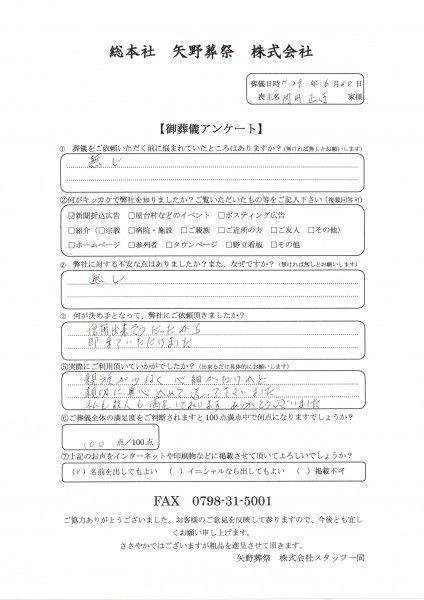 総本社 矢野葬祭 株式会社
葬儀日時 H29年6月20日
喪主名 家様
【御葬儀アンケート】
① 葬儀をご依頼いただく前に悩まれていたところはありますか?(無ければ無しとお願いします)
無し
②何がキッカケで弊社を知りましたか?ご覧いただいたもの等をご記入下さい(複数回答可)
☑新聞折込広告 □屋台村などのイベント □ポスティング広告
□紹介(□宗教 □病院・施設 □ご親族 □ご近所の方 □ご友人 □その他)
□ホームページ □参列者 □タウンページ □野立看板 □その他
② 弊社に対する不安な点はありましたか?また、なぜですか?(無ければ無しとお願いします)
無し
③ 何が決め手となって、弊社にご依頼頂きましたか?
信用出来そうだったから
即来ていただけました
⑤実際にご利用頂いていかがでしたか?(出来るだけ具体的にお願いします)
親族が少なく心細かったけれど
親切に真心込めて送って下さいました
私も故人も満足しております ありがとうございました
⑥ご葬儀全体の満足度をご判断されますと100点満点中で何点になりますでしょうか?
100 点/100点
⑦上記のお声をインターネットや印刷物などに掲載させて頂いてよろしいでしょうか?
(✓)名前を出してもよい ( )イニシャルなら出してもよい ( )掲載不可
FAX 0798-31-5001
ご協力ありがとうございました。お客様のご意見を反映して参りますので、今後とも宜し
くお願い申し上げます。
ささやかではございますが粗品を進呈させて頂きます。
矢野葬祭 株式会社スタッフ一同